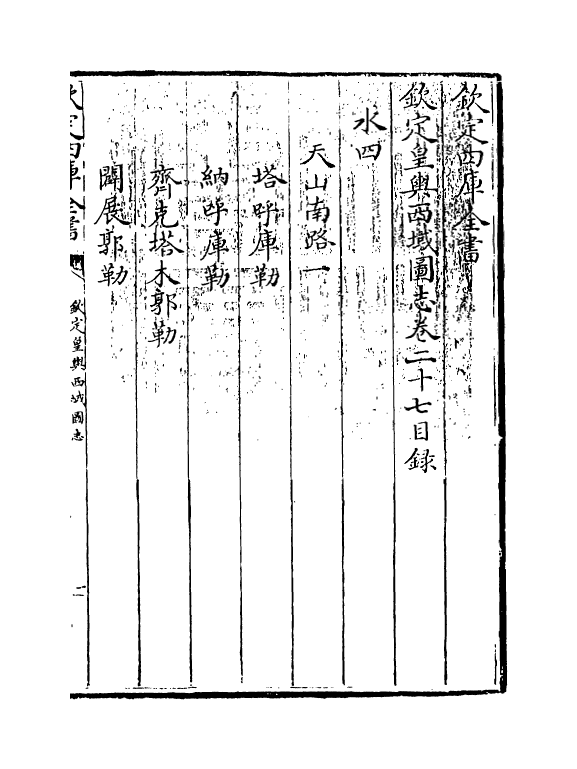 欽定四庫全書
欽定皇輿西域圖志卷二十七目録
水四
天山南路一
塔呼庫勒
納呼庫勒
齊克塔木郭勒
闢展郭勒
欽定四庫全書
欽定皇輿西域圖志
二